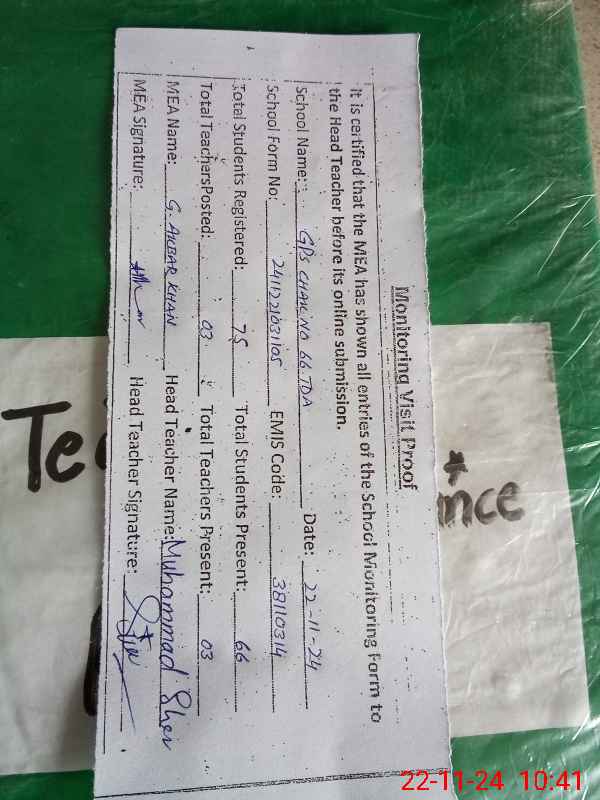 Monitoring Visit Proof
It is certified that the MEA has shown all entries of the School Monitoring Form to
the Head Teacher before its online submission.
School Name: GPS CHAK NO 66.TDA Date: 22-11-24
School Form No: 2411221031105 EMIS Code: 38110314
Total Students Registered: 75 Total Students Present: 66
Total TeachersPosted: 03 Total Teachers Present: 03
MEA Name: G. AKBAR KHAN Head Teacher Name: Muhammad Sher
MEA Signature: Head Teacher Signature:
Te
nce
22-11-24 10:41